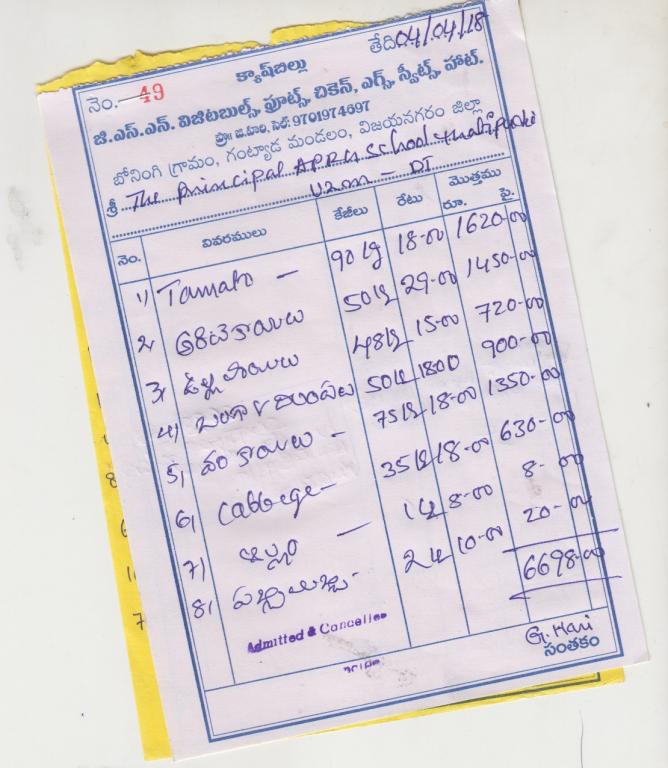 క్యాష్‌బిల్లు
నెం. 49 తేది 04/04/18
జి.ఎస్.ఎన్. విజిటబుల్స్, ఫ్రూట్స్, చికెన్, ఎగ్స్, స్వీట్స్, హాట్.
ప్రొ: జి.హరి, సెల్: 9701974697
బోనింగి గ్రామం, గంట్యాడ మండలం, విజయనగరం జిల్లా
శ్రీ The principal APRU school
Vzm - DT
నెం. వివరములు కేజీలు రేటు మొత్తము రూ. పై.
1) Tamato - 90 kg 18-00 1620-00
2, అరటికాయలు 50 kg 29-00 1450-00
3, ఉల్లిపాయలు 48 kg 15-00 720-00
4) బంగాళదుంపలు 50 kg 1800 900-00
5, వంకాయలు - 75 kg 18-00 1350-00
6, Cabbege - 35 kg 18-00 630-00
7) అల్లం - 1 kg 8-00 8-00
8, పచ్చిమిర్చి - 2 kg 10-00 20-00
6698-00
Admitted & Cancelled
G. Hari
సంతకం